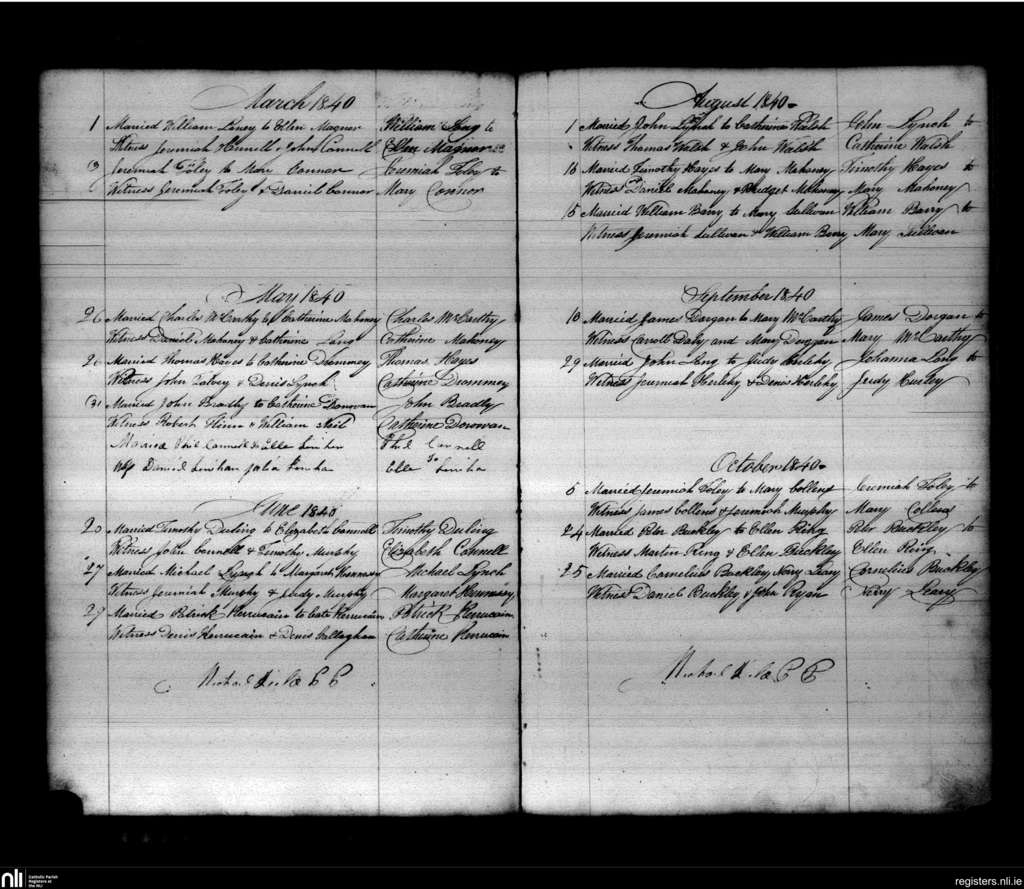 March 1840
1 Married William to Ellen Magner William to
Witness Jeremiah & John Connell Ellen Magner
Jeremiah Foley to Mary Connor Jeremiah Foley to
Witness Jeremiah Foley & Daniel Connor Mary Connor
May 1840
26 Married Charles McCarthy to Catherine Mahoney Charles McCarthy
Witness Daniel Mahoney & Catherine Lang Catherine Mahoney
Married Thomas Hayes to Catherine Drommey Thomas Hayes
Witness John & Denis Lynch Catherine Drommey
31 Married John Bradly to Catherine Donovan John Bradly
Witness Robert Flinn & William Neil Catherine Donovan
Married Phil Connell & Elle Linihan Phil Connell
Daniel Linihan Julia to
Elle
June 1840
20 Married Timothy Duling to Elizabeth Connell Timothy Duling
Witness John Connell & Timothy Murphy Elizabeth Connell
27 Married Michael Lynch to Margaret Hennessy Michael Lynch
Witness Jeremiah Murphy & Judy Murphy Margaret Hennessy
29 Married Patrick Kerrucain to Cate Kerrucain Patrick Kerrucain
Witness Denis Kerrucain & Denis Callaghan Catherine Kerrucain
Michael C C
August 1840
1 Married John Lynch to Catherine Walsh John Lynch to
Witness Thomas Walsh & John Walsh Catherine Walsh
Married Timothy Hayes to Mary Mahoney Timothy Hayes to
Witness Daniel Mahoney & Bridget Mahoney Mary Mahoney
15 Married William Barry to Mary Sullivan William Barry to
Witness Jeremiah Sullivan & William Barry Mary Sullivan
September 1840
Married James Dorgan to Mary McCarthy James Dorgan to
Witness Carroll Daly and Mary Dorgan Mary McCarthy
29 Married John Lang to Judy Herlehy Johanna Lang to
Witness Jeremiah Herlehy & Denis Herlehy Judy Hurley
October 1840
5 Married Jeremiah Foley to Mary Collens Jeremiah Foley to
Witness James Collens & Jeremiah Murphy Mary Collens
24 Married Peter Buckley to Ellen Ring Peter Buckley to
Witness Martin Ring & Ellen Buckley Ellen Ring
25 Married Cornelius Buckley Nory Leary Cornelius Buckley
Witness Daniel Buckley & John Ryan Nory Leary
Michael C C
nli
Catholic Parish
Registers at
the NLI
registers.nli.ie